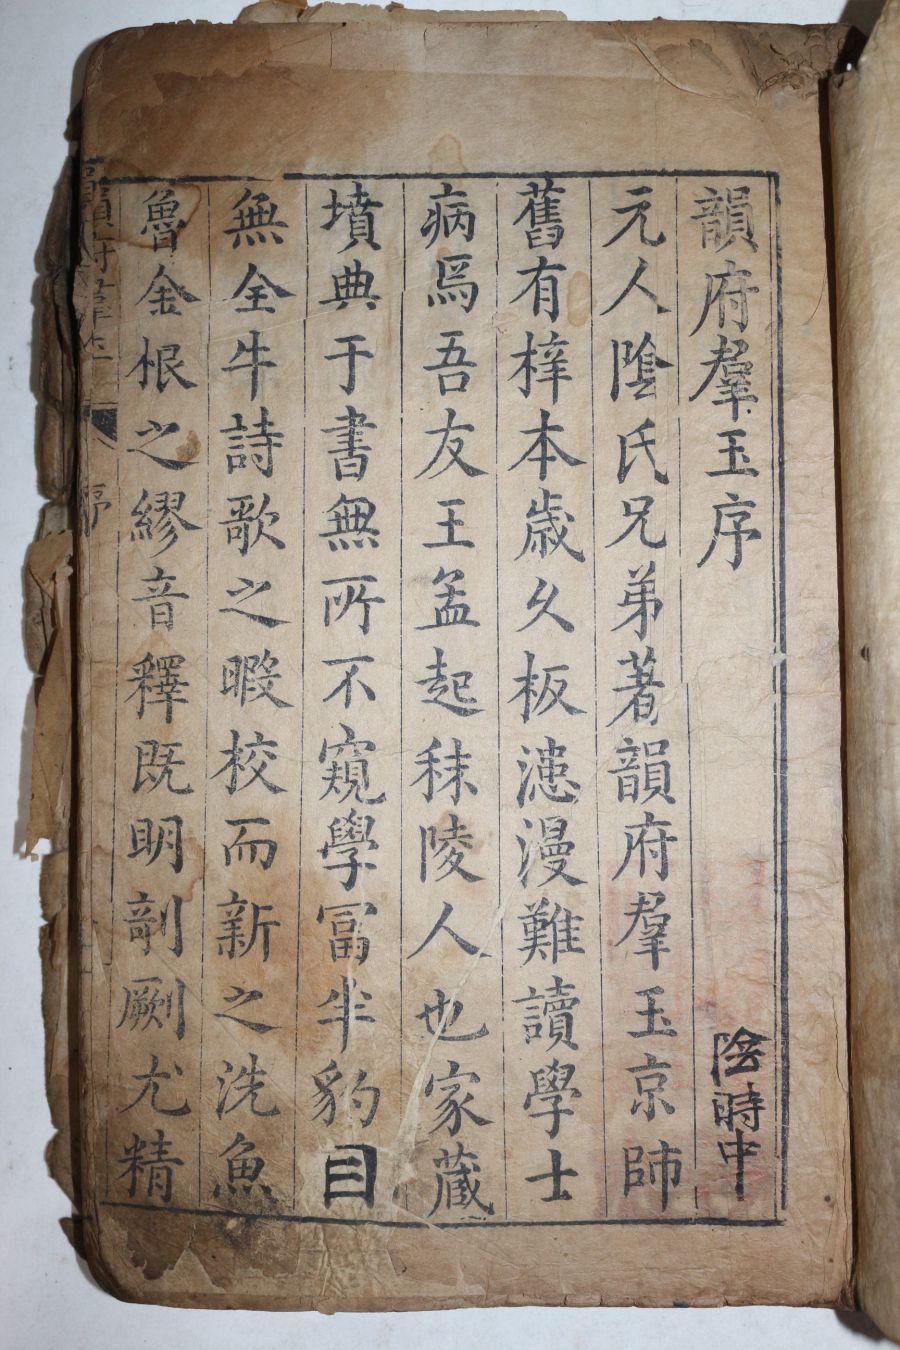 韻府羣玉序
陰時中
元人陰氏兄弟著韻府羣玉京師
舊有梓本歲久板漶漫難讀學士
病焉吾友王孟起秣陵人也家蔵
墳典于書無所不窺學冨半豹目
無全牛詩歌之暇校而新之洗魚
魯金根之繆音釋既明剞劂尤精
韻府羣玉 序